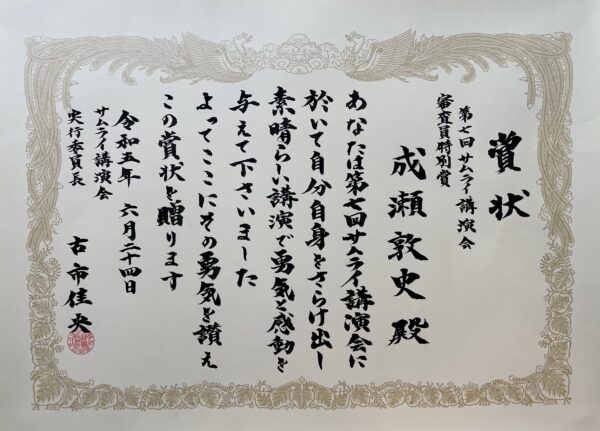 賞状
第七回サムライ講演会
審査員特別賞
成瀬敦史殿
あなたは第七回サムライ講演会に
於いて自分自身をさらけ出し
素晴らしい講演で勇気と感動を
与えて下さいました
よってここにその勇気を讃え
この賞状を贈ります
令和五年 六月二十四日
サムライ講演会
実行委員長
古市佳央